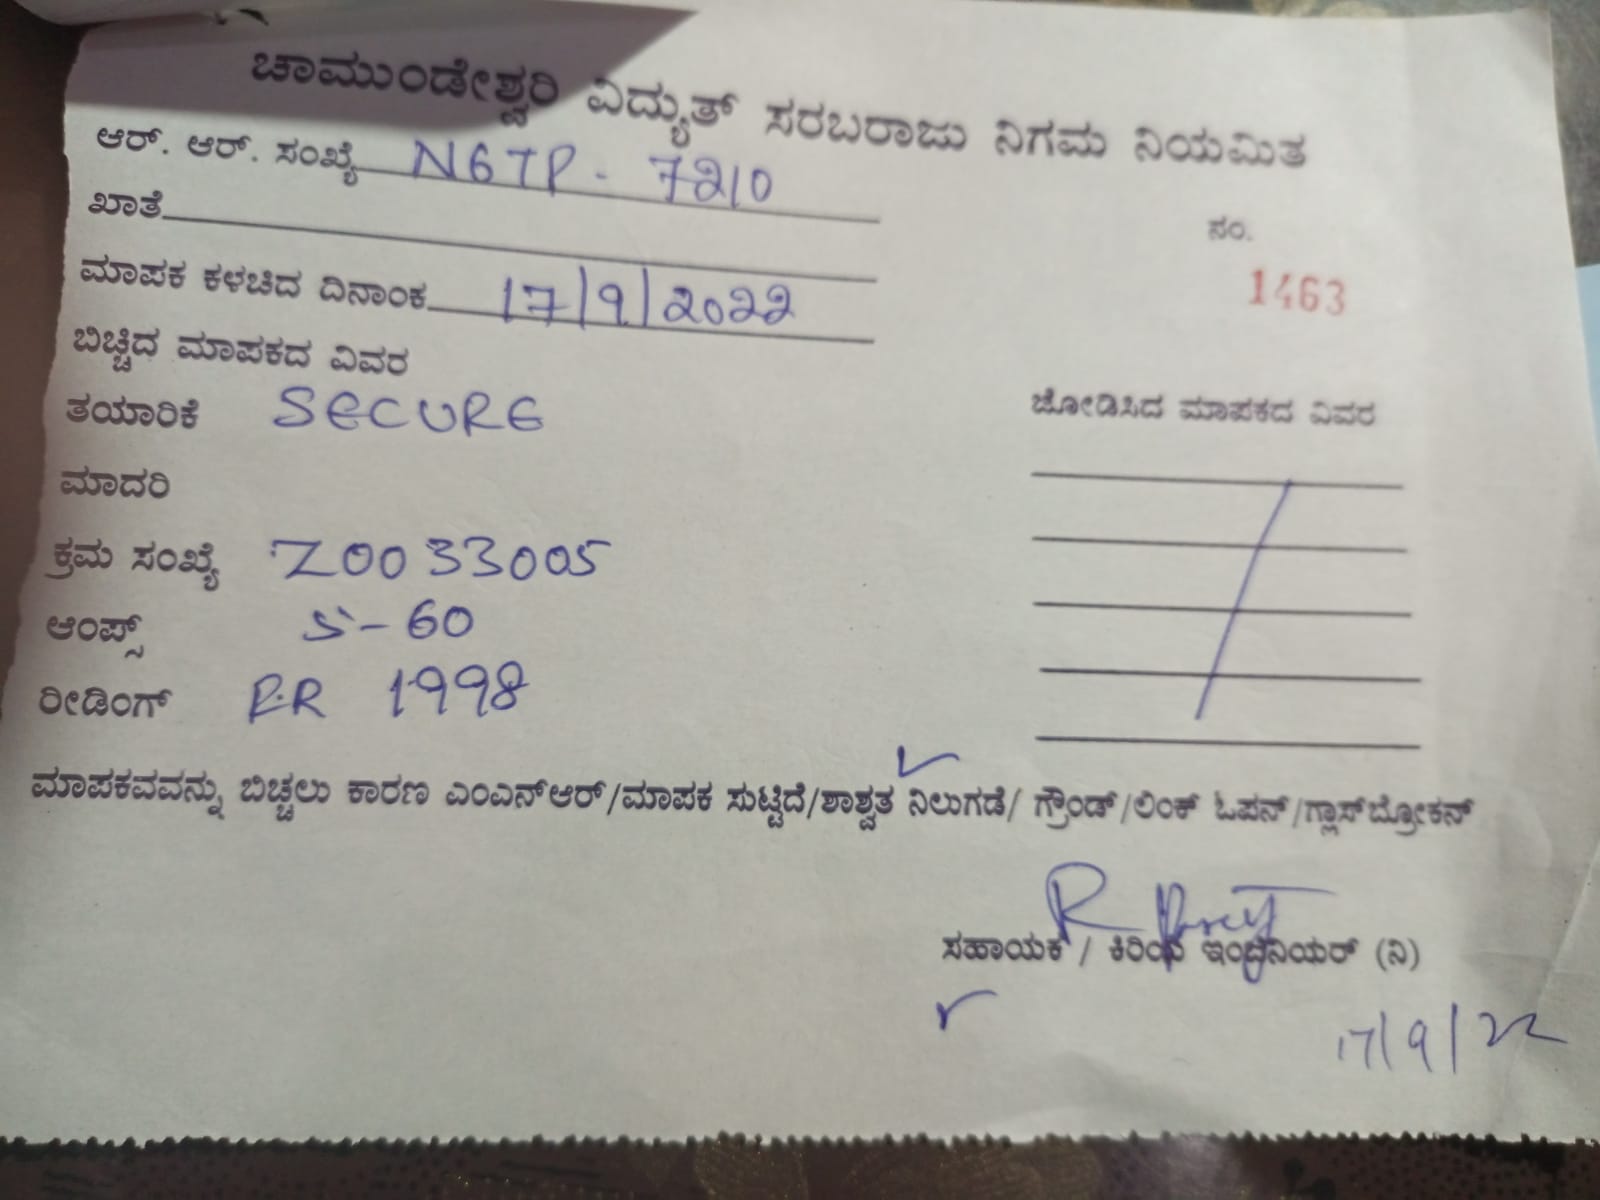 ಚಾಮುಂಡೇಶ್ವರಿ ವಿದ್ಯುತ್ ಸರಬರಾಜು ನಿಗಮ ನಿಯಮಿತ
ಆರ್. ಆರ್. ಸಂಖ್ಯೆ N6TP - 7210
ಖಾತೆ
ನಂ.
1463
ಮಾಪಕ ಕಳಚಿದ ದಿನಾಂಕ 17/9/2022
ಬಿಚ್ಚಿದ ಮಾಪಕದ ವಿವರ
ಜೋಡಿಸಿದ ಮಾಪಕದ ವಿವರ
ತಯಾರಿಕೆ SECURE
ಮಾದರಿ
ಕ್ರಮ ಸಂಖ್ಯೆ Z0033005
ಆಂಪ್ಸ್ 5-60
ರೀಡಿಂಗ್ 1998
ಮಾಪಕವವನ್ನು ಬಿಚ್ಚಲು ಕಾರಣ ಎಂಎನ್ಆರ್/ಮಾಪಕ ಸುಟ್ಟಿದೆ/ಶಾಶ್ವತ ನಿಲುಗಡೆ/ ಗ್ರೌಂಡ್/ಲಿಂಕ್ ಓಪನ್/ಗ್ಲಾಸ್‌ಬ್ರೋಕನ್
ಸಹಾಯಕ / ಕಿರಿಯ ಇಂಜಿನಿಯರ್ (ನಿ)
17/9/22